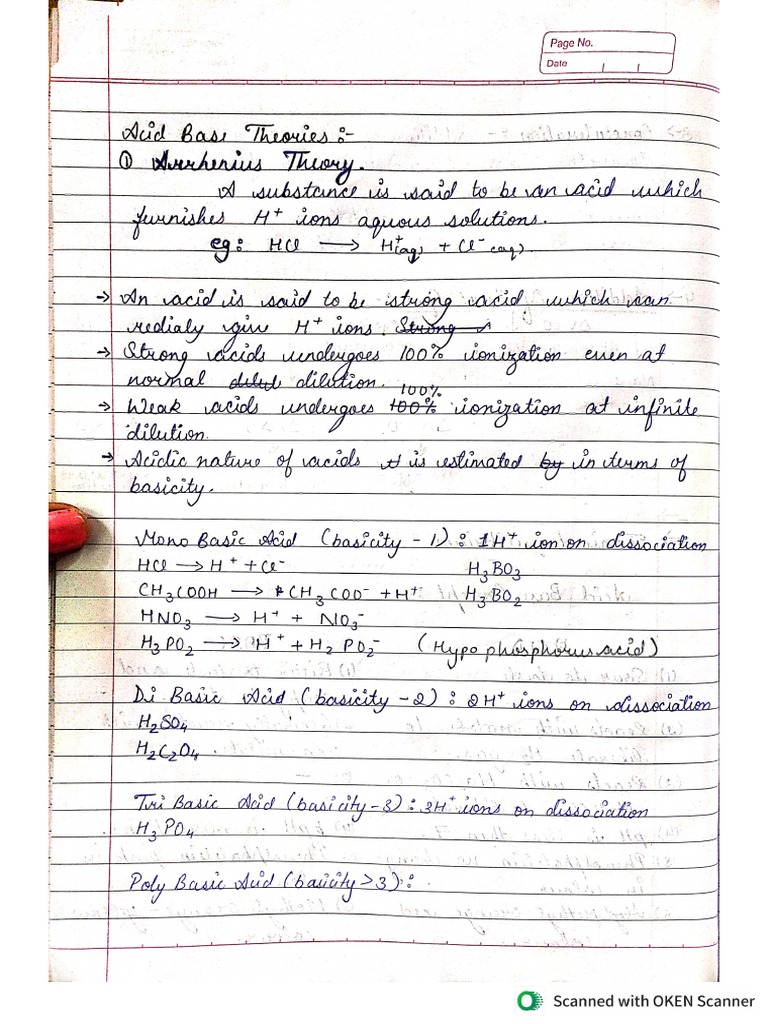 Page No.
Date
Acid Base Theories :-
① Arrhenius Theory.
A substance is said to be an acid which
furnishes H⁺ ions aquous solutions.
eg: HCl ⟶ H⁺(aq) + Cl⁻(aq)
→ An acid is said to be strong acid which can
redialy give H⁺ ions. Strong
→ Strong acids undergoes 100% ionization even at
normal dilution.
100%
→ Weak acids undergoes 100% ionization at infinite
dilution.
→ Acidic nature of acids is estimated by in terms of
basicity.
Mono Basic Acid (basicity - 1) : 1H⁺ ion on dissociation
HCl ⟶ H⁺ + Cl⁻ H₃BO₃
CH₃COOH ⟶ CH₃COO⁻ + H⁺ H₃BO₂
HNO₃ ⟶ H⁺ + NO₃⁻
H₃PO₂ ⟶ H⁺ + H₂PO₂⁻ (Hypo phosphorus acid)
Di Basic Acid (basicity - 2) : 2H⁺ ions on dissociation
H₂SO₄
H₂C₂O₄
Tri Basic Acid (basicity - 3) : 3H⁺ ions on dissociation
H₃PO₄
Poly Basic Acid (basicity > 3) :
Scanned with OKEN Scanner